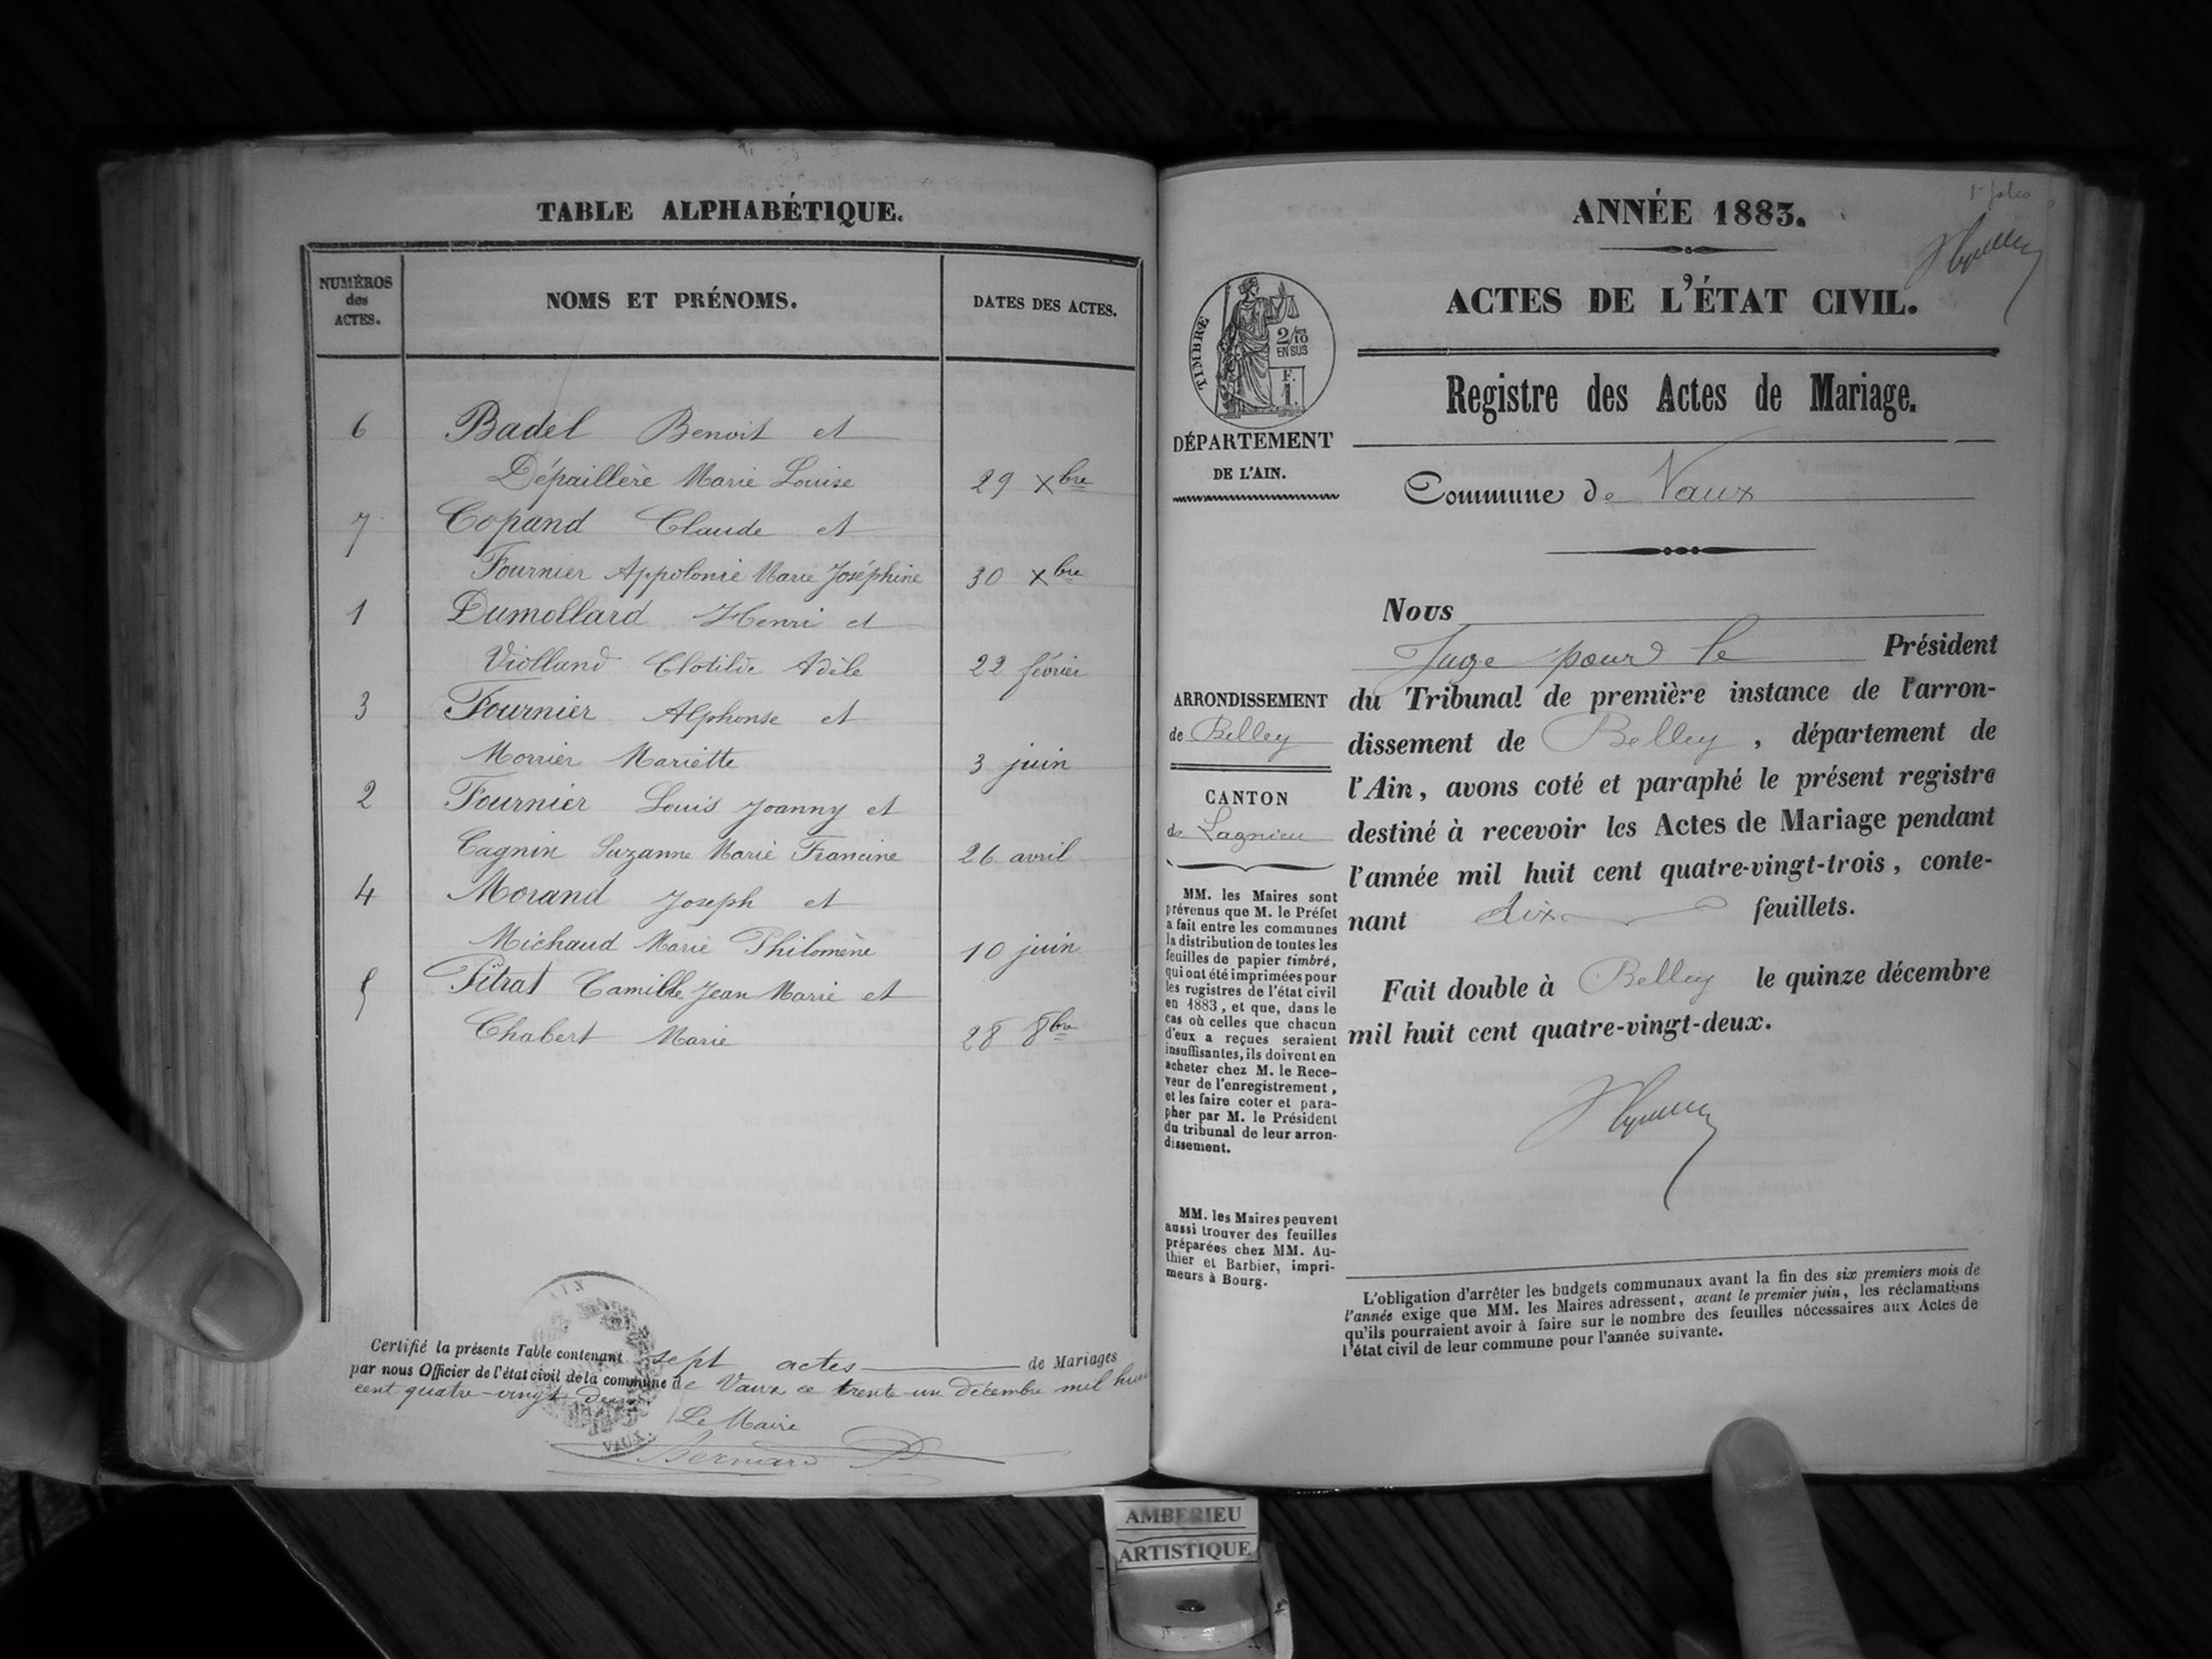 TABLE ALPHABÉTIQUE.
NUMÉROS
des
ACTES.
NOMS ET PRÉNOMS.
DATES DES ACTES.
6 Badel Benoit et
Dépaillère Marie Louise 29 Xbre
7 Copand Claude et
Fournier Appolonie Marie Joséphine 30 Xbre
1 Dumollard Henri et
Violland Clotilde Adèle 22 février
3 Fournier Alphonse et
Morrier Mariette 3 juin
2 Fournier Louis Joanny et
Cagnin Suzanne Marie Francine 26 avril
4 Morand Joseph et
Michaud Marie Philomène 10 juin
5 Pitrat Camille Jean Marie et
Chabert Marie 28 8bre
Certifié la présente Table contenant sept actes de Mariages
par nous Officier de l'état civil de la commune de Vaux ce trente-un décembre mil huit
cent quatre-vingt deux
Le Maire
Bernard
AIN
VAUX
1er folio
ANNÉE 1883.
ACTES DE L'ÉTAT CIVIL.
TIMBRE
2/10
EN SUS
F.
1.
Registre des Actes de Mariage.
DÉPARTEMENT
DE L'AIN.
Commune de Vaux
Nous
Juge pour le Président
du Tribunal de première instance de l'arron-
dissement de Belley, département de
l'Ain, avons coté et paraphé le présent registre
destiné à recevoir les Actes de Mariage pendant
l'année mil huit cent quatre-vingt-trois, conte-
nant dix feuillets.
Fait double à Belley le quinze décembre
mil huit cent quatre-vingt-deux.
ARRONDISSEMENT
de Belley
CANTON
de Lagnieu
MM. les Maires sont
prévenus que M. le Préfet
a fait entre les communes
la distribution de toutes les
feuilles de papier timbré,
qui ont été imprimées pour
les registres de l'état civil
en 1883, et que, dans le
cas où celles que chacun
d'eux a reçues seraient
insuffisantes, ils doivent en
acheter chez M. le Rece-
veur de l'enregistrement,
et les faire coter et para-
pher par M. le Président
du tribunal de leur arron-
dissement.
MM. les Maires peuvent
aussi trouver des feuilles
préparées chez MM. Au-
thier et Barbier, impri-
meurs à Bourg.
L'obligation d'arrêter les budgets communaux avant la fin des six premiers mois de
l'année exige que MM. les Maires adressent, avant le premier juin, les réclamations
qu'ils pourraient avoir à faire sur le nombre des feuilles nécessaires aux Actes de
l'état civil de leur commune pour l'année suivante.
AMBERIEU
ARTISTIQUE